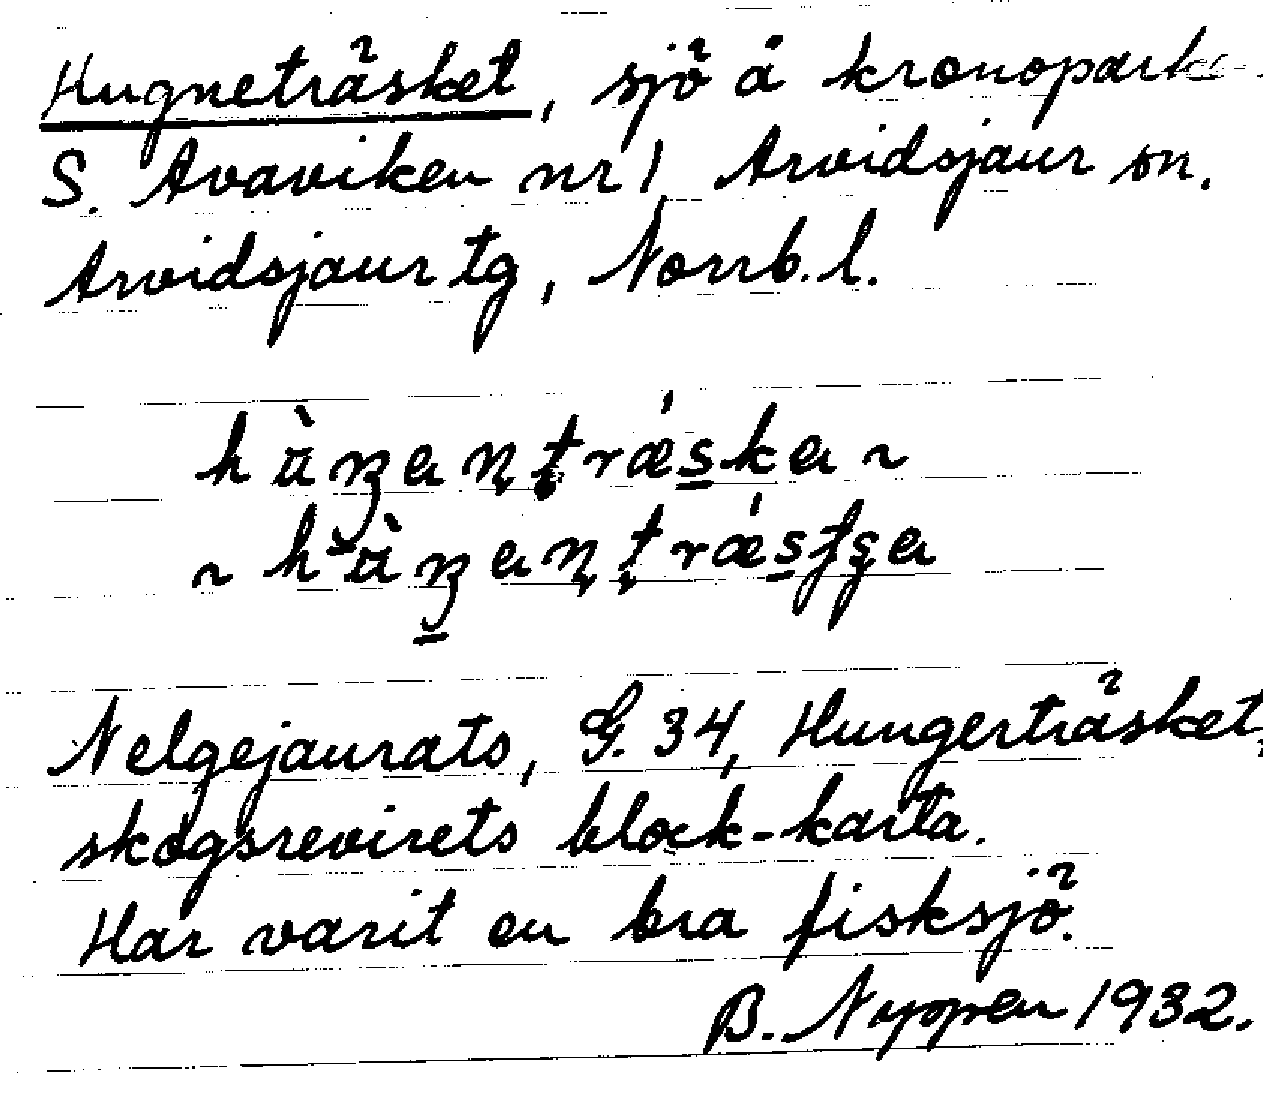 Hugneträsket, sjö å kronopark
S. Avaviken nr 1, Arvidsjaur sn.
Arvidsjaur tg, Norrb. l.
Nelgejaurats, G. 34, Hungerträsket,
skogsrevirets block-karta.
Har varit en bra fisksjö.
B. Nyppen 1932.